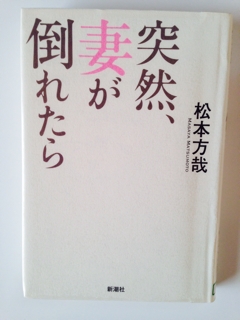 突然、
妻が
倒れたら
松本方哉
MASAYA MATSUMOTO
新潮社